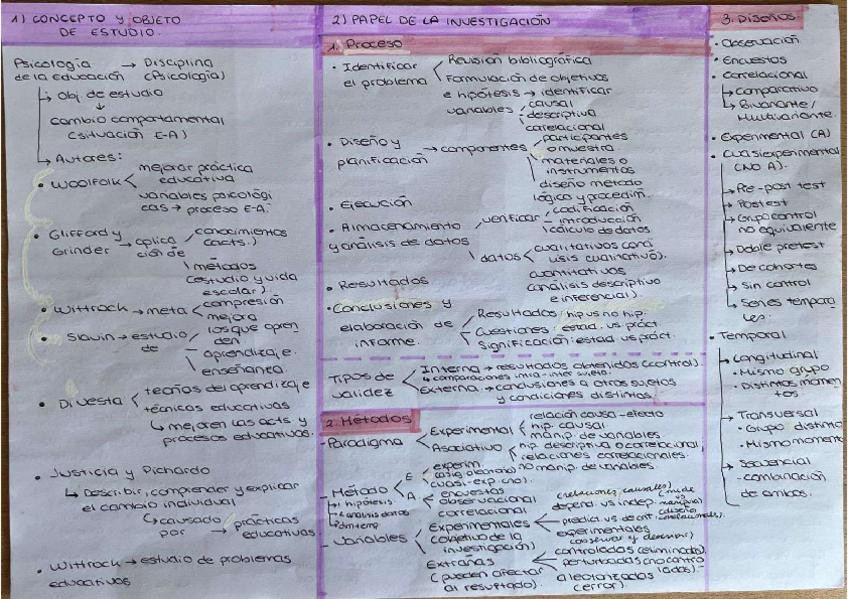 1) CONCEPTO Y OBJETO
DE ESTUDIO.
Psicología → Disciplina
de la educación (Psicología)
↳ Obj. de estudio
↓
cambio comportamental
(situación E-A)
↳ Autores:
• WOOLFOLK < mejorar práctica
educativa
variables psicológi
cas → proceso E-A.
• Gliffard y
Grinder → aplica
ción de
conocimientos
(acts.)
métodos
(estudio y vida
escolar)
• Wittrock → meta < compresión
mejora
• Slavin → estudio
de
los que apren
den
aprendizaje.
enseñanza.
• Divesta < teorías del aprendizaje
técnicas educativas
↳ mejoren las acts y
procesos educativos.
• Justicia y Pichardo
↳ Describir, comprender y explicar
el cambio individual
↳ causado
por → prácticas
educativas
• Wittrock → estudio de problemas
educativos
2) PAPEL DE LA INVESTIGACIÓN
1. Proceso
• Identificar
el problema
Revisión bibliográfica
Formulación de objetivos
e hipótesis → identificar
variables
causal
descriptiva
correlacional
• Diseño y
planificación → componentes
participantes
o muestra
materiales o
instrumentos
diseño metodo
lógico y procedim.
• Ejecución
• Almacenamiento
y análisis de datos
verificar
codificación
introducción
cálculo de datos
datos
cualitativos (aná
lisis cualitativo).
cuantitativos
(análisis descriptivo
e inferencial).
• Resultados
• Conclusiones y
elaboración de
informe.
Resultados / hip. vs no hip.
Cuestiones estad. vs práct.
Significación: estad. vs práct.
Tipos de
validez
Interna → resultados obtenidos (control).
↳ comparaciones intra-inter sujeto.
Externa → conclusiones a otros sujetos
y condiciones distintas
2. Métodos
- Paradigma
Experimental
relación causa-efecto
hip. causal
manip. de variables
Asociativo
hip. descriptiva o correlacional,
relaciones correlacionales.
no manip. de variables.
- Método
↳ hipótesis
análisis datos
E
experim
cuasi-exp.
A
encuestas
observacional
correlacional
- Variables
Experimentales
(objetivo de la
investigación)
(relaciones causales)
depend. vs indep.
predict. vs de crit.
experimentales
Extrañas
(pueden afectar
al resultado).
controladas (eliminadas).
perturbadas (no contro
ladas).
aleatorizadas
(error).
3. Diseños
• Observación
• Encuestas
• Correlacional
↳ Comparativo
↳ Bivariante /
Multivariante.
• Experimental (A)
• Cuasiexperimental
(NO A).
↳ Pre-post test
↳ Postest
↳ Grupo control
no equivalente
↳ Doble pretest
↳ De cohortes
↳ Sin control
↳ Series tempora
les.
• Temporal
↳ Longitudinal
• Mismo grupo
• Distintos momen
tos
↳ Transversal
• Grupo distinto
• Mismo momento
↳ Secuencial
- combinación
de ambos.